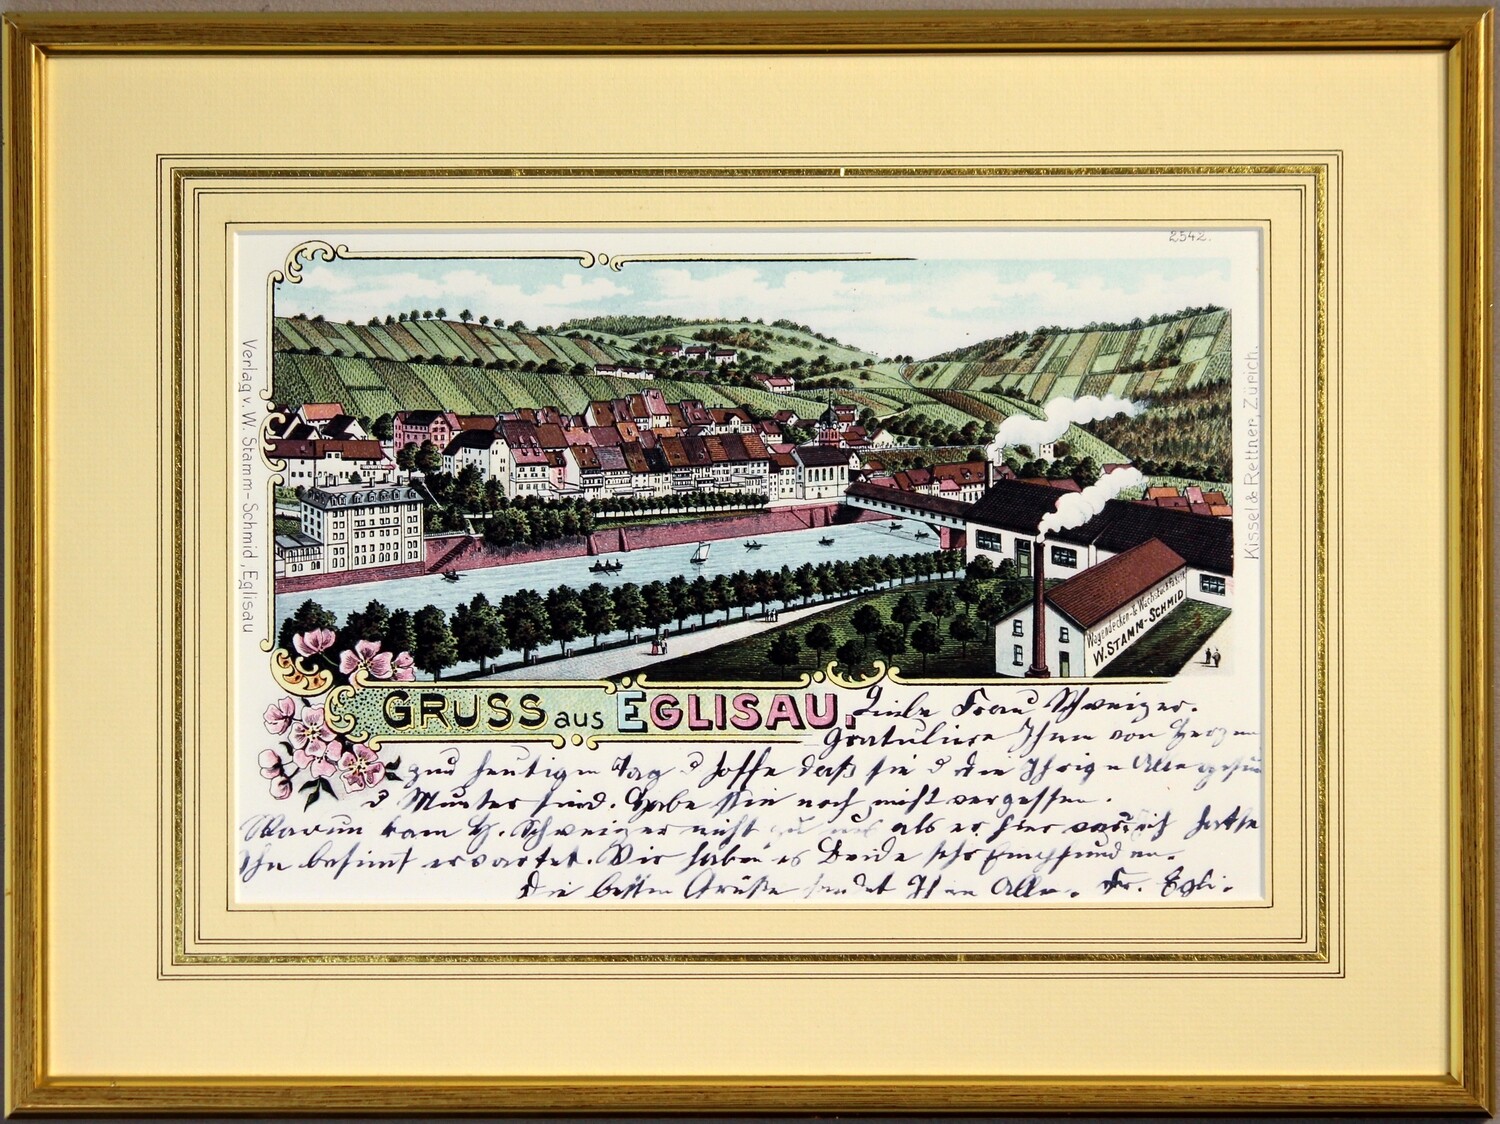 2542.
Verlag v. W. Stamm-Schmid, Eglisau
Kissel & Rettner, Zürich.
Wagendecken- & Wachstuch Fabrik
W. STAMM-SCHMID
GRUSS aus EGLISAU.
Liebe Frau Schweizer.
Gratuliere Ihnen von Herzen
zum heutigen Tag & hoffe daß sie & die Ihrigen Alle gesund
& Munter sind. Habe Sie noch nicht vergessen.
Warum kam H. Schweizer nicht zu uns als er hier war, ich hatte
Ihn bestimt erwartet. Wir haben es Beide sehr Empfunden.
Die besten Grüße sendet Ihnen Allen. Fr. Egli.